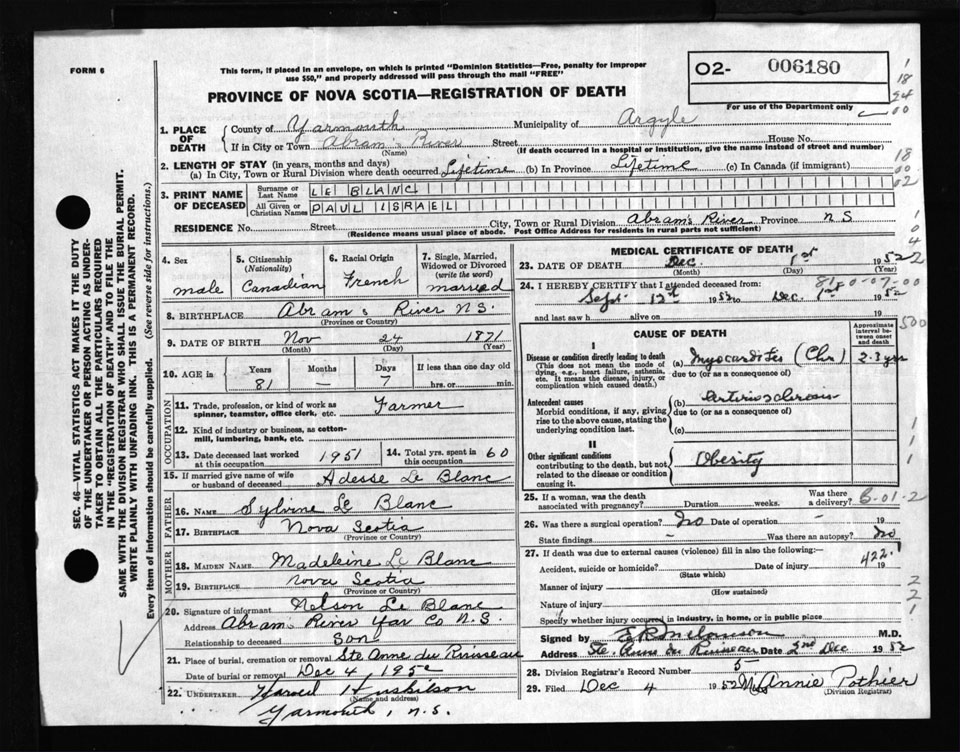 FORM 6
This form, if placed in an envelope, on which is printed "Dominion Statistics—Free, penalty for improper
use $50," and properly addressed will pass through the mail "FREE"
O2- 006180
For use of the Department only
PROVINCE OF NOVA SCOTIA—REGISTRATION OF DEATH
1. PLACE OF DEATH { County of Yarmouth Municipality of Argyle
If in City or Town Abram's River Street House No.
(Name) (If death occurred in a hospital or institution, give the name instead of street and number)
2. LENGTH OF STAY (in years, months and days)
(a) In City, Town or Rural Division where death occurred Lifetime (b) In Province Lifetime (c) In Canada (if immigrant)
3. PRINT NAME OF DECEASED { Surname or Last Name LE BLANC
All Given or Christian Names PAUL ISRAEL
RESIDENCE No. Street City, Town or Rural Division Abram's River Province N S
(Residence means usual place of abode. Post Office Address for residents in rural parts not sufficient)
4. Sex male
5. Citizenship (Nationality) Canadian
6. Racial Origin French
7. Single, Married, Widowed or Divorced (write the word) married
8. BIRTHPLACE Abram's River N.S.
(Province or Country)
9. DATE OF BIRTH Nov 24 1871
(Month) (Day) (Year)
10. AGE in { Years 81 Months — Days 7 If less than one day old hrs. or min.
OCCUPATION
11. Trade, profession, or kind of work as spinner, teamster, office clerk, etc. Farmer
12. Kind of industry or business, as cotton-mill, lumbering, bank, etc.
13. Date deceased last worked at this occupation 1951
14. Total yrs. spent in this occupation 60
15. If married give name of wife or husband of deceased Adesse Le Blanc
FATHER
16. NAME Sylvine Le Blanc
17. BIRTHPLACE Nova Scotia
(Province or Country)
MOTHER
18. MAIDEN NAME Madeleine Le Blanc
19. BIRTHPLACE Nova Scotia
(Province or Country)
20. Signature of informant Nelson Le Blanc
Address Abrams River Yar Co N.S.
Relationship to deceased Son
21. Place of burial, cremation or removal Ste Anne du Ruisseau
Date of burial or removal Dec 4, 1952
22. UNDERTAKER Harold Huskilson
(Name and address)
Yarmouth, N.S.
MEDICAL CERTIFICATE OF DEATH
23. DATE OF DEATH Dec. 1st 1952
(Month) (Day) (Year)
24. I HEREBY CERTIFY that I attended deceased from:
Sept. 12th 1952 to Dec. 1st 1952
and last saw h alive on 19
CAUSE OF DEATH
Approximate interval between onset and death
I
Disease or condition directly leading to death
(This does not mean the mode of dying, e.g., heart failure, asthenia, etc. It means the disease, injury, or complication which caused death.)
(a) Myocarditis (Chr) 2-3 yrs
due to (or as a consequence of)
Antecedent causes
Morbid conditions, if any, giving rise to the above cause, stating the underlying condition last.
(b) Arteriosclerosis
due to (or as a consequence of)
(c)
II
Other significant conditions
contributing to the death, but not related to the disease or condition causing it.
Obesity
25. If a woman, was the death associated with pregnancy? Duration weeks. Was there a delivery?
6-01-2
26. Was there a surgical operation? No Date of operation - 19
State findings - Was there an autopsy? No
27. If death was due to external causes (violence) fill in also the following:—
422.1
Accident, suicide or homicide? Date of injury 19
(State which)
Manner of injury
(How sustained)
Nature of injury
Specify whether injury occurred in industry, in home, or in public place
Signed by M.D.
Address Ste. Anne du Ruisseau Date 2nd Dec 1952
28. Division Registrar's Record Number 5
29. Filed Dec 4 1952 Mrs Annie Pothier
(Division Registrar)
SEC. 46—VITAL STATISTICS ACT MAKES IT THE DUTY
OF THE UNDERTAKER OR PERSON ACTING AS UNDER-
TAKER TO OBTAIN ALL THE PARTICULARS REQUIRED
IN THE "REGISTRATION OF DEATH" AND TO FILE THE
SAME WITH THE DIVISION REGISTRAR WHO SHALL ISSUE THE BURIAL PERMIT.
WRITE PLAINLY WITH UNFADING INK. THIS IS A PERMANENT RECORD.
Every item of information should be carefully supplied. (See reverse side for instructions.)